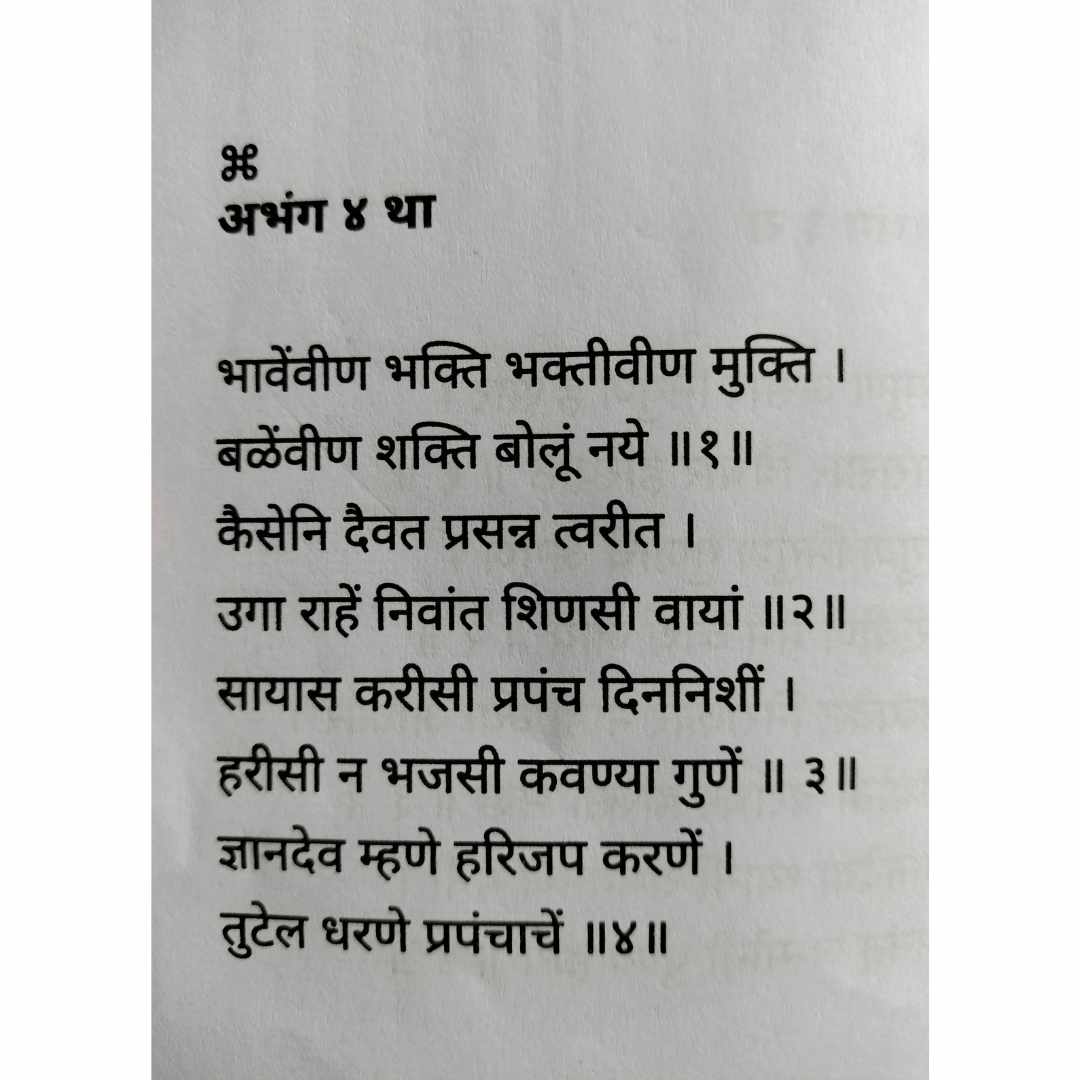 ⌘
अभंग ४ था
भावेंवीण भक्ति भक्तीवीण मुक्ति ।
बळेंवीण शक्ति बोलूं नये ॥१॥
कैसेनि दैवत प्रसन्न त्वरीत ।
उगा राहें निवांत शिणसी वायां ॥२॥
सायास करीसी प्रपंच दिननिशीं ।
हरीसी न भजसी कवण्या गुणें ॥ ३॥
ज्ञानदेव म्हणे हरिजप करणें ।
तुटेल धरणे प्रपंचाचें ॥४॥